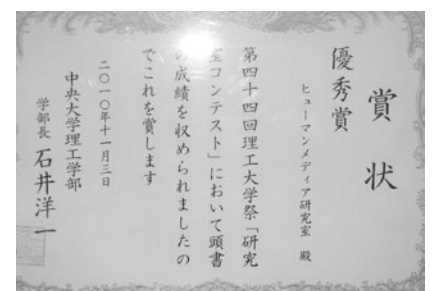 賞状
優秀賞
ヒューマンメディア研究室 殿
第四十四回理工大学祭「研究
室コンテスト」において頭書
の成績を収められましたの
でこれを賞します
二〇一〇年十一月三日
中央大学理工学部
学部長 石井洋一